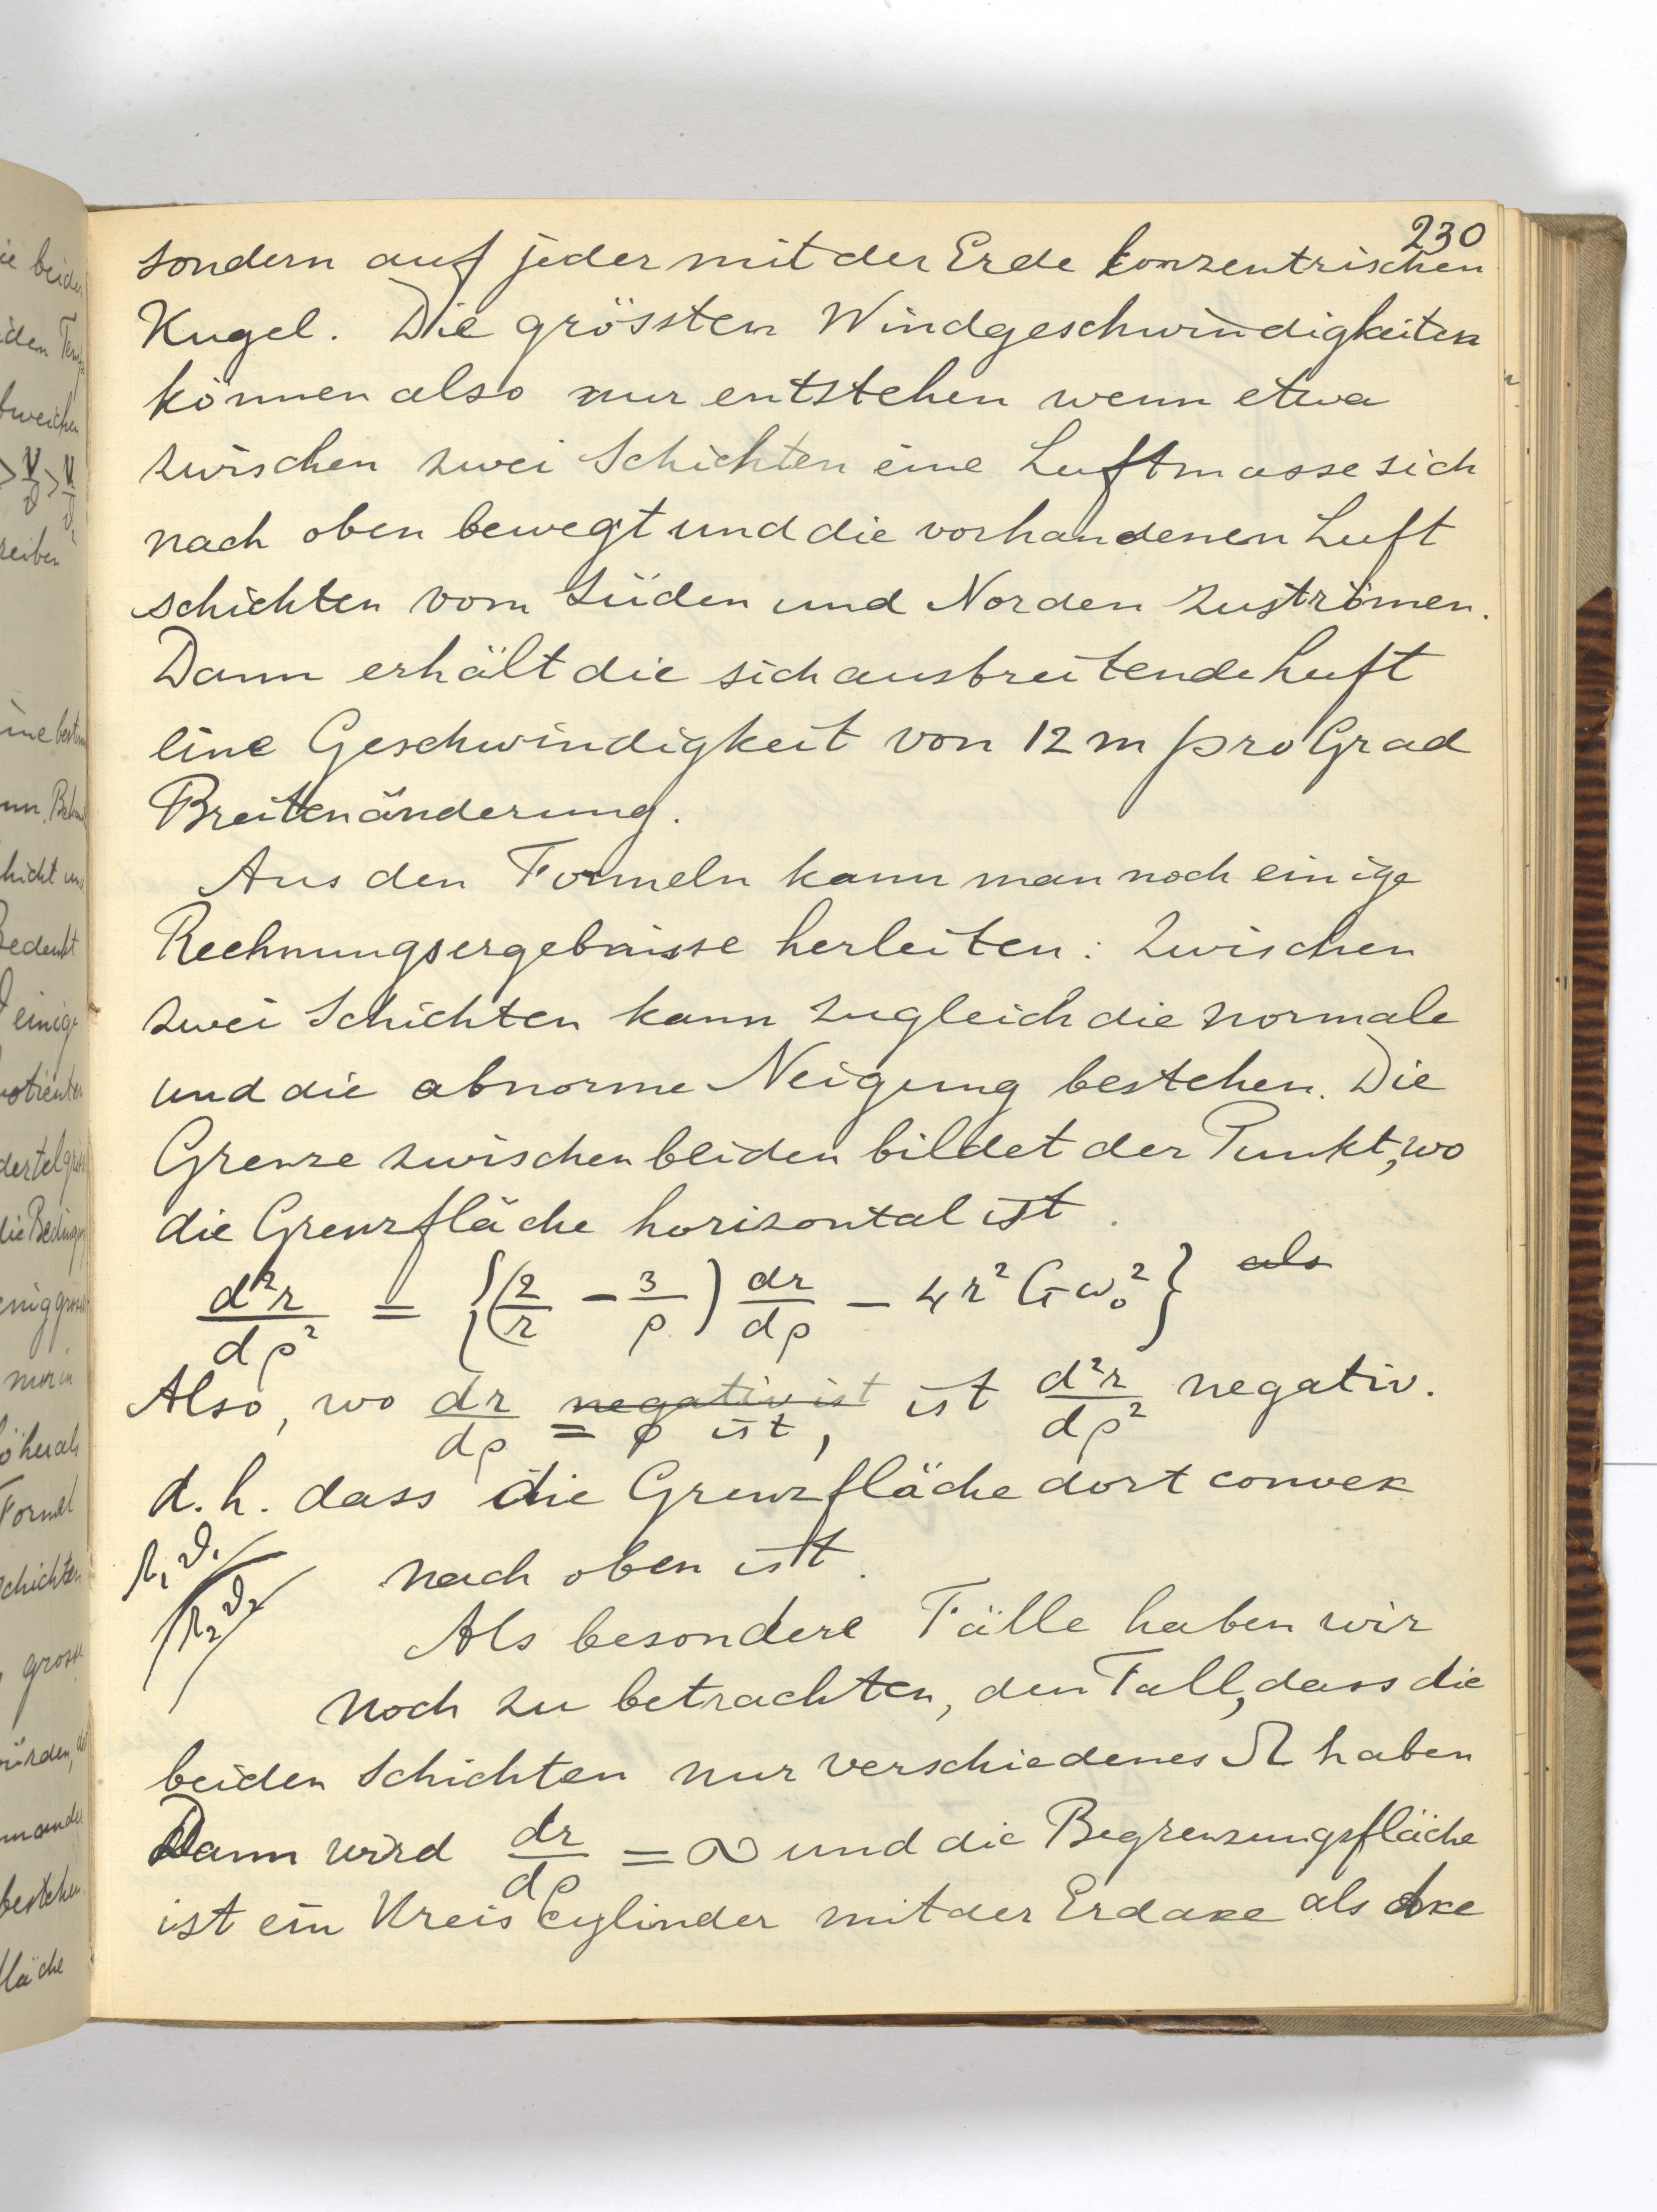 230
sondern auf jeder mit der Erde konzentrischen
Kugel. Die grössten Windgeschwindigkeiten
können also nur entstehen wenn etwa
zwischen zwei Schichten eine Luftmasse sich
nach oben bewegt und die vorhandenen Luft
schichten vom Süden und Norden zuströmen.
Dann erhält die sich ausbreitende Luft
eine Geschwindigkeit von 12 m pro Grad
Breitenänderung.
Aus den Formeln kann man noch einige
Rechnungsergebnisse herleiten: Zwischen
zwei Schichten kann zugleich die normale
und die abnorme Neigung bestehen. Die
Grenze zwischen beiden bildet der Punkt, wo
die Grenzfläche horizontal ist.
d²r/dρ² = {(2/r − 3/ρ) dr/dρ − 4r²Gω₀²} als
Also, wo dr/dρ negativ ist = 0 ist, ist d²r/dρ² negativ.
d.h. dass die Grenzfläche dort convex
nach oben ist.
Ω₁ϑ₁
Ω₂ϑ₂
Als besondere Fälle haben wir
noch zu betrachten, den Fall, dass die
beiden Schichten nur verschiedenes Ω haben
Dann wird dr/dρ = ∞ und die Begrenzungsfläche
ist ein Kreiscylinder mit der Erdaxe als Axe